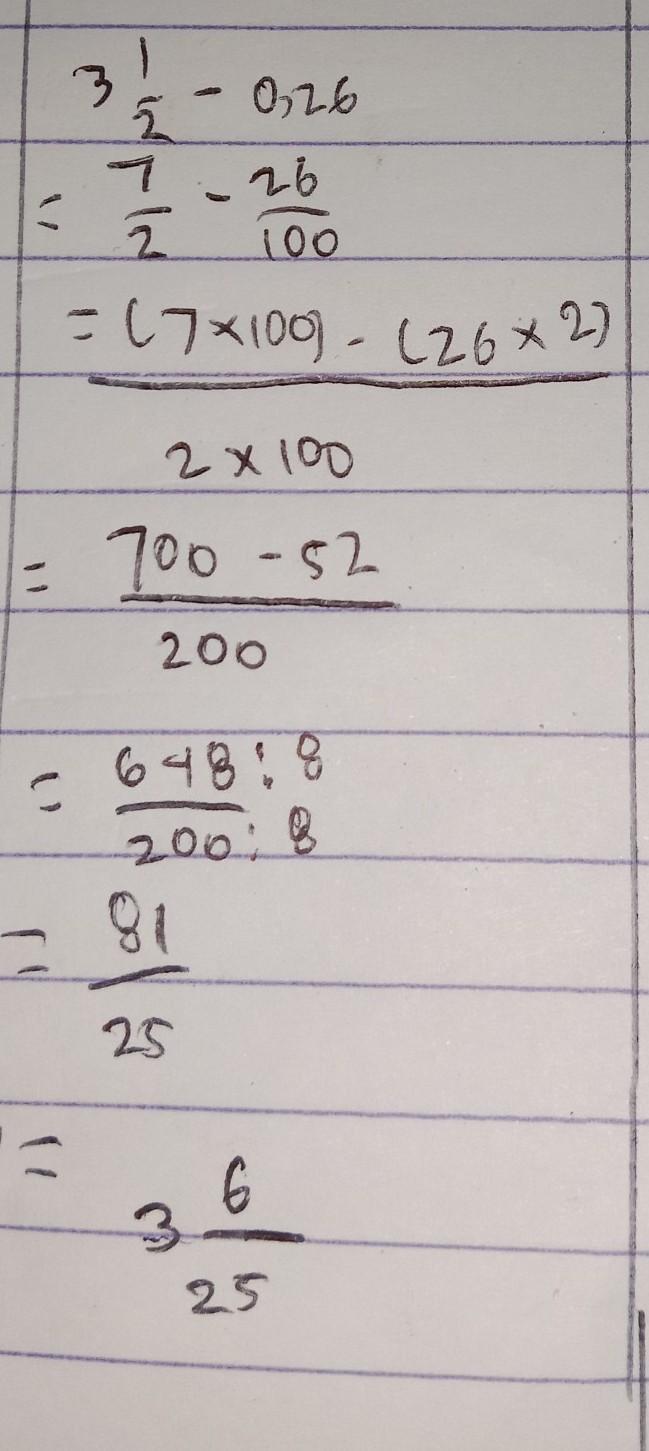 3 1/2 - 0,26
= 7/2 - 26/100
= (7×100) - (26×2)
2×100
= 700 - 52
200
= 648 : 8
200 : 8
= 81
25
= 3 6/25